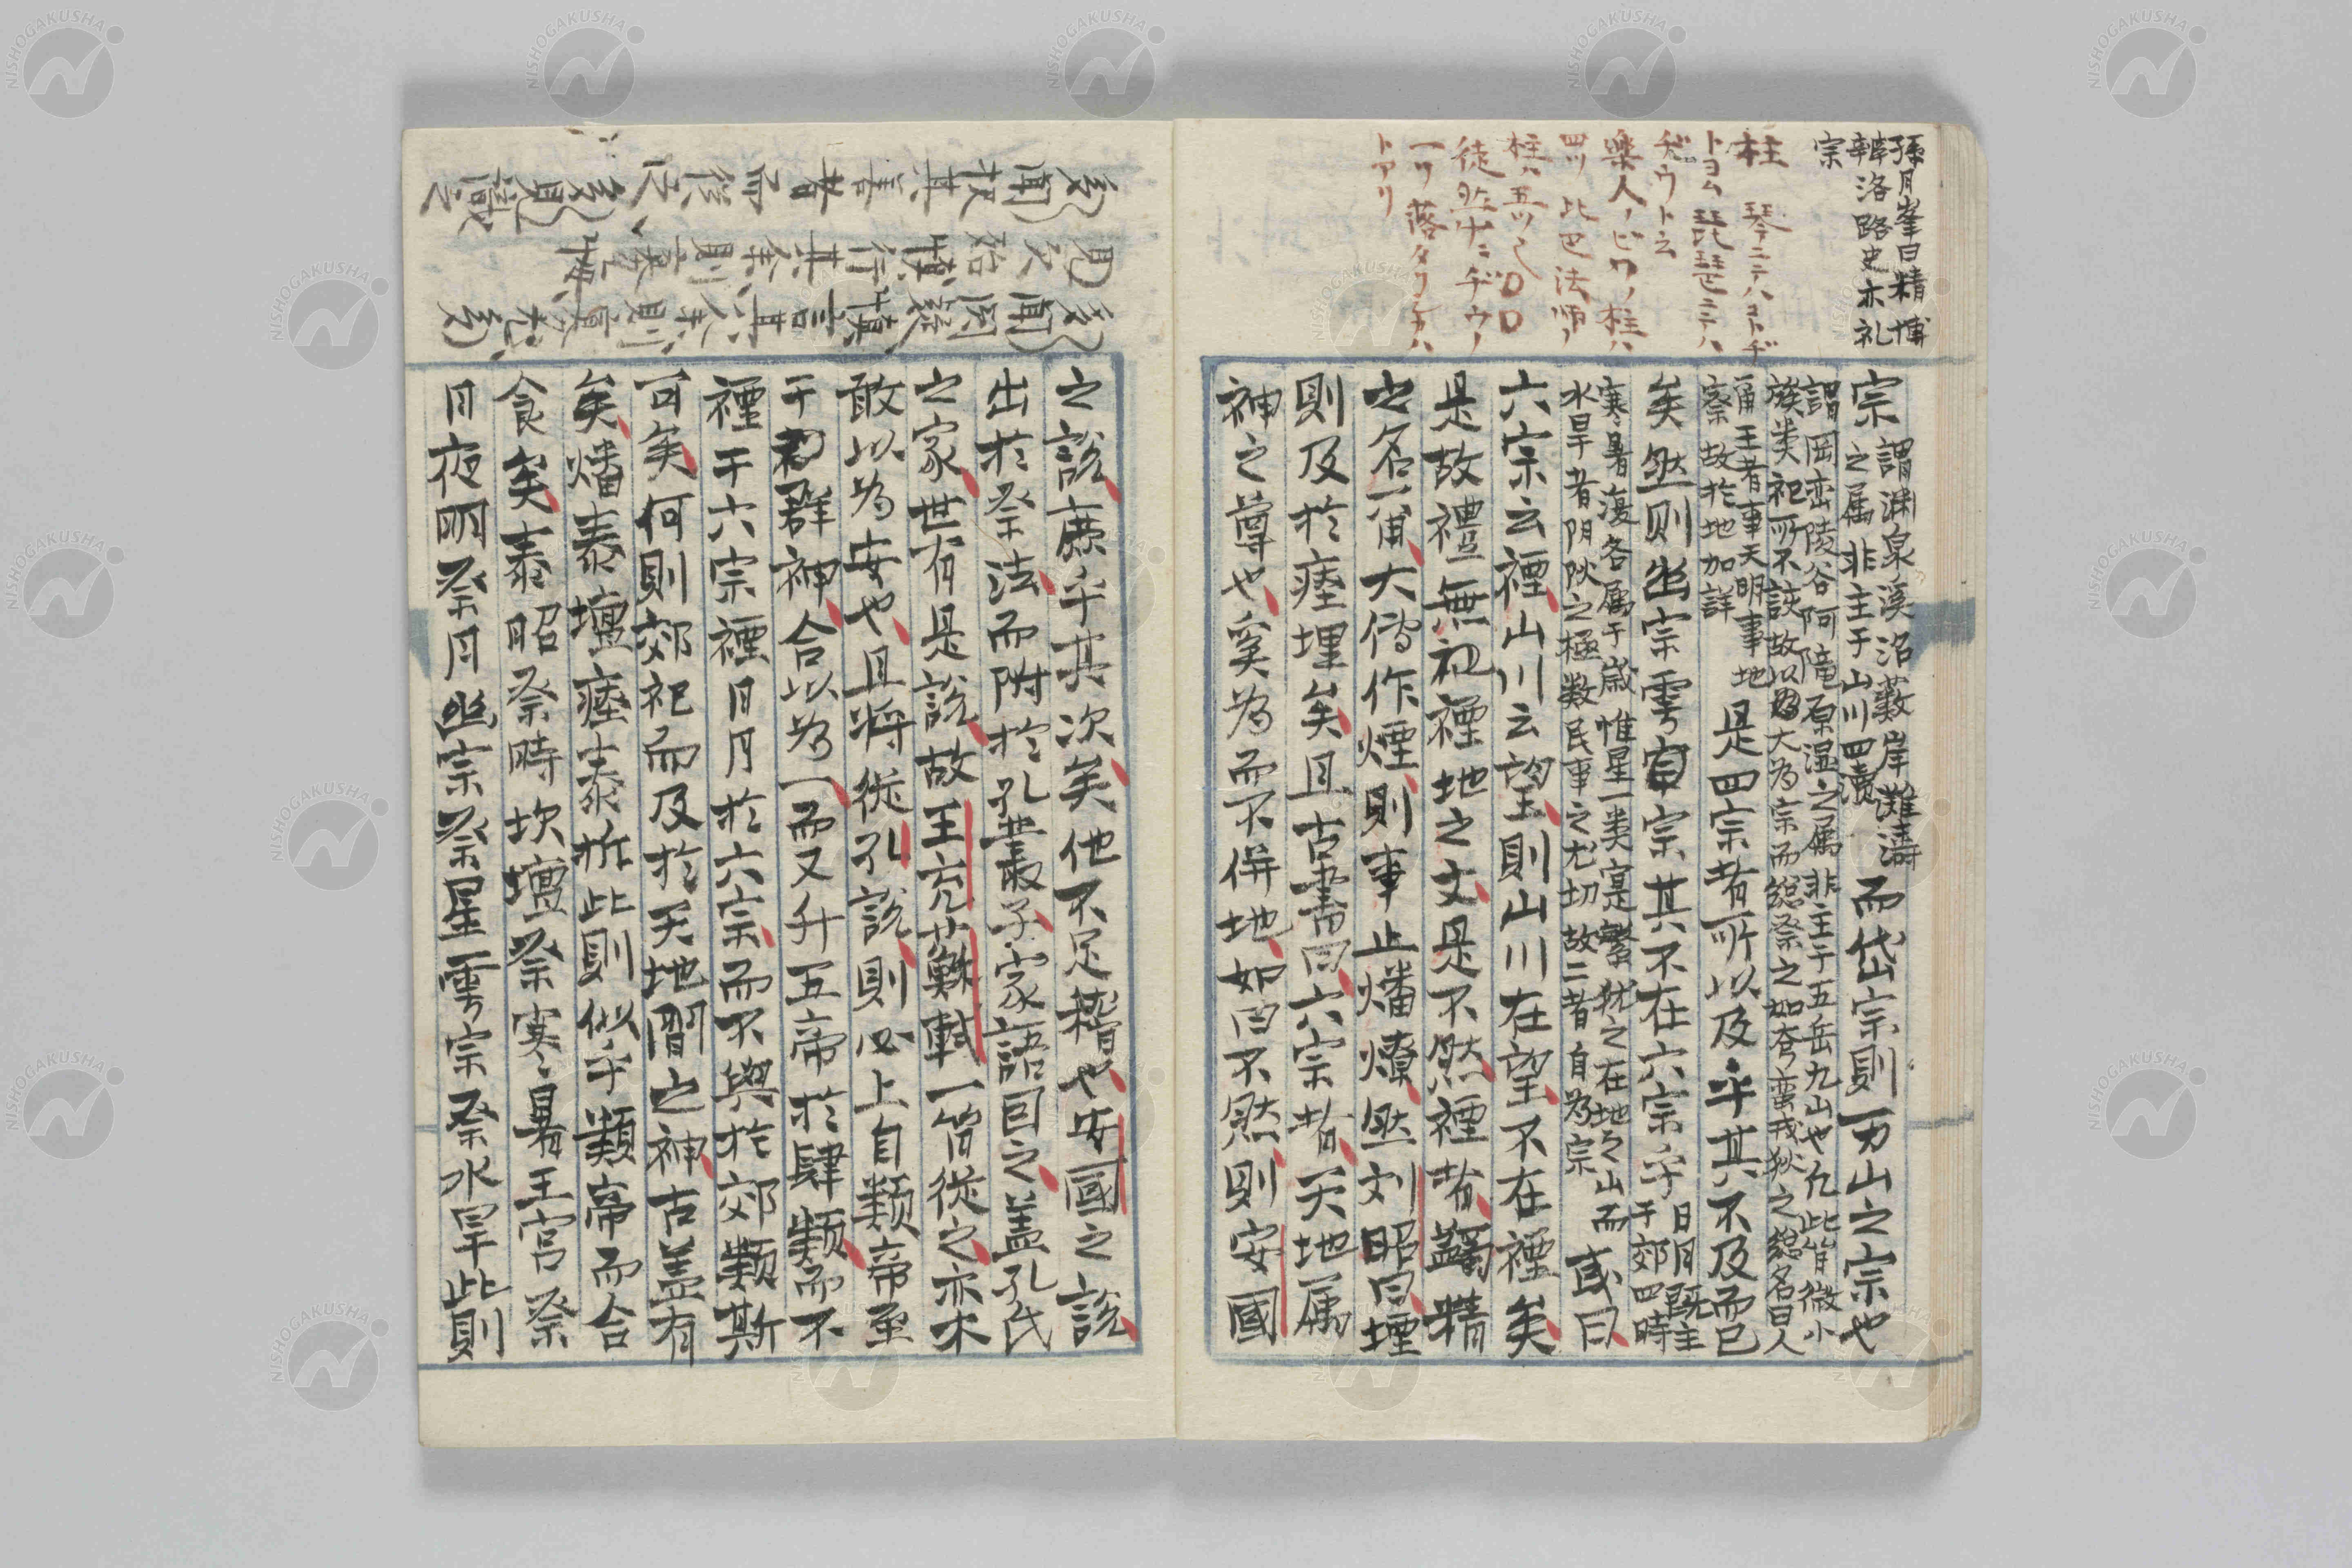 孫月峯曰精博
辨洛路史亦礼
宗
柱　琴ニテハコトヂ
トヨム琵琶ニテハ
ヂウト云
樂人ノビワノ柱ハ
四ツ比巴法師ノ
柱ハ五ツ
徒然ナニヂウノ
一ツ落タリケハ
トアリ
宗謂淵泉溪沼藪岸灘濤
之属非主于山川四瀆而岱宗則万山之宗也
謂岡巒陵谷阿隆原温之属非主于五岳九山也凡此皆微小
族类祀所不該故以大为宗而総祭之如夸蛮戎狄之総名曰人
甫王者事天明事地
察故於地加詳是四宗者所以及乎其不及而已
矣然则幽宗雩宗其不在六宗乎日月既主
于郊四時
寒暑復各属于歳惟星一类寔繁犹之在地之山而
水旱者阴阦之極数民事之尤切故二者自为宗或曰
六宗云禋山川云望則山川在望不在禋矣
是故禮無祀禋地之文是不然禋者蠲精
之名一甫大傳作煙則事止燔燎然刘昭曰堙
則及於瘗埋矣且古書曰六宗者天地属
神之尊也奚为而不併地如曰不然則安國
之說廉乎其次矣他不足稽也安國之說
出於祭法而附於孔叢子家語因之盖孔氏
之家世有是說故王充蘇軾一皆從之亦未
敢以为安也且将從孔說則必上自類帝至
于群神合以为一而又升五帝於肆類而不
禋于六宗禋日月於六宗而不與於郊類斯
可矣何則郊祀而及於天地間之神古盖有
矣燔泰壇瘗泰析此則似乎類帝而合
食矣泰昭祭時坎壇祭寒暑王宮祭
日夜明祭月幽宗祭星雩宗祭水旱此則
多聞択其善者而從之多見而識之
多聞闕疑慎言其余則寡尤多
見闕殆慎行其余則寡悔